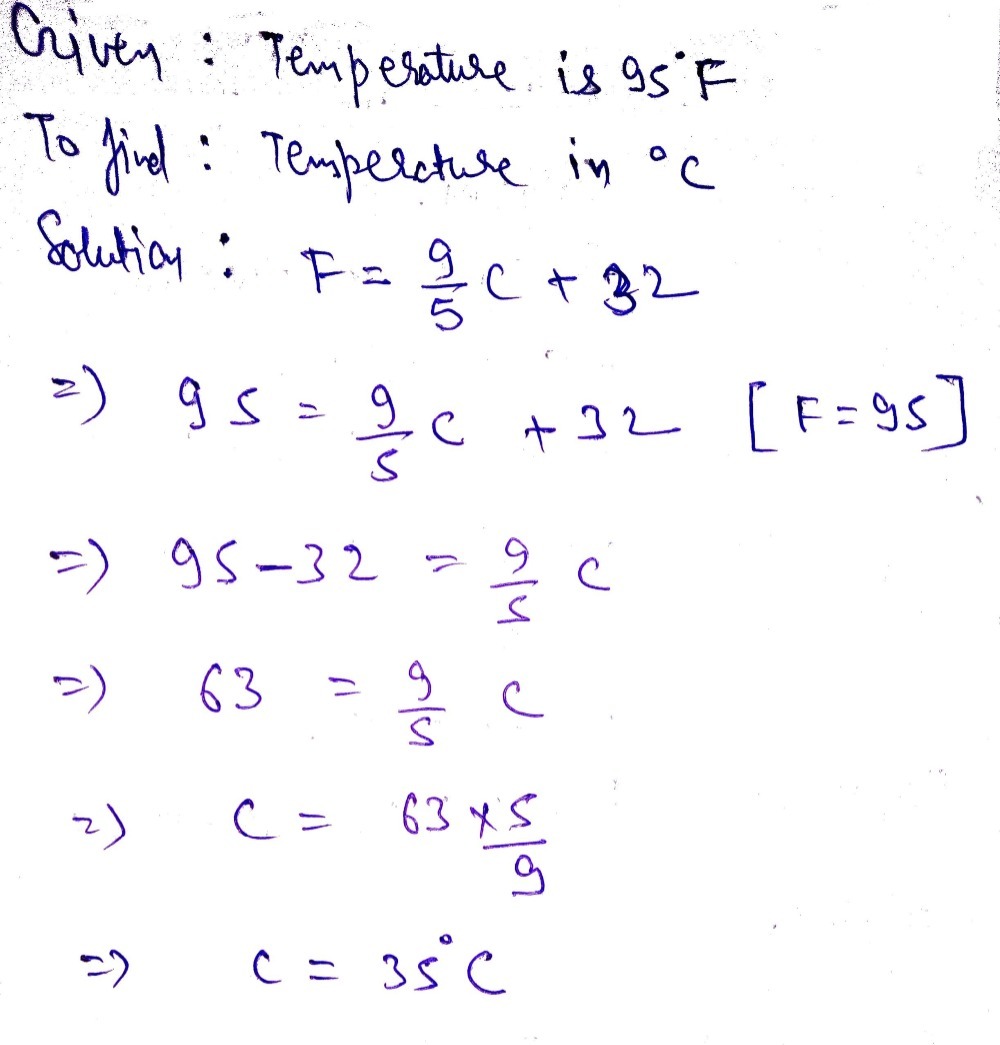 Given : Temperature is 95°F
To find : Temperature in °C
Solution : F = 9/5 C + 32
=) 95 = 9/5 C + 32 [F=95]
=) 95-32 = 9/5 C
=) 63 = 9/5 C
=) C = 63 × 5/9
=) C = 35°C